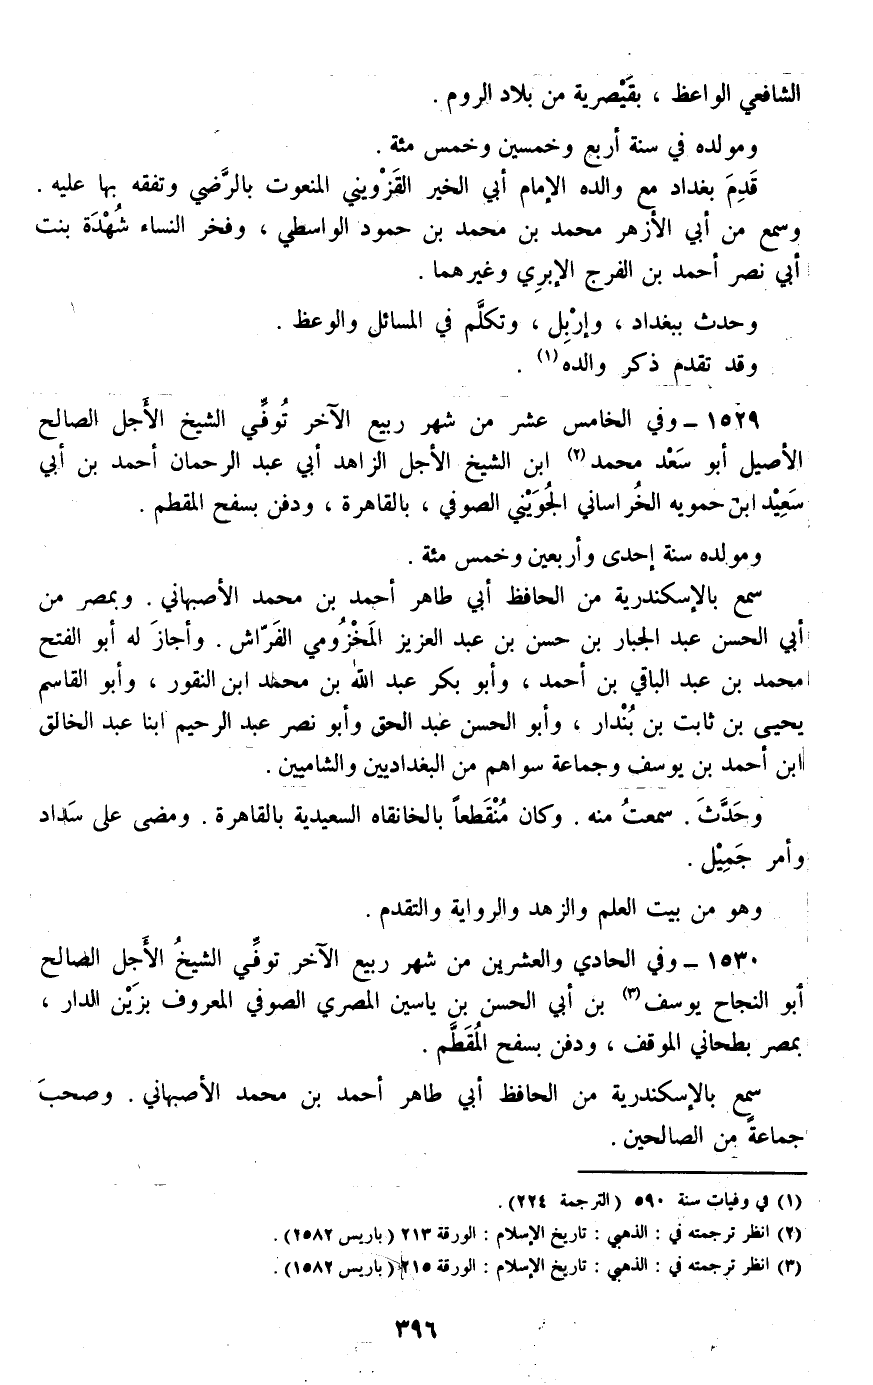 الشافعي الواعظ ، بقَيْصرية من بلاد الروم .
ومولده في سنة أربع وخمسين وخمس مئة .
قَدِمَ بغداد مع والده الإمام أبي الخير القَزْويني المنعوت بالرَّضي وتفقه بها عليه .
وسمع من أبي الأزهر محمد بن محمد بن حمود الواسطي ، وفخر النساء شُهْدَة بنت
أبي نصر أحمد بن الفرج الإبرِي وغيرهما .
وحدث ببغداد ، وإرْبِل ، وتكلَّم في المسائل والوعظ .
وقد تقدم ذكر والده(١) .
١٥٢٩ ـ وفي الخامس عشر من شهر ربيع الآخر تُوفِّي الشيخ الأَجل الصالح
الأصيل أبو سَعْد محمد(٢) ابن الشيخ الأجل الزاهد أبي عبد الرحمان أحمد بن أبي
سَعِيْد ابن حمويه الخُراساني الجُوَيْني الصوفي ، بالقاهرة ، ودفن بسفح المقطم .
ومولده سنة إحدى وأربعين وخمس مئة .
سمع بالإسكندرية من الحافظ أبي طاهر أحمد بن محمد الأصبهاني . وبمصر من
أبي الحسن عبد الجبار بن حسن بن عبد العزيز المَخْزُومي الفَرّاش . وأجازَ له أبو الفتح
محمد بن عبد الباقي بن أحمد ، وأبو بكر عبد الله بن محمد ابن النقور ، وأبو القاسم
يحيى بن ثابت بن بُنْدار ، وأبو الحسن عبد الحق وأبو نصر عبد الرحيم ابنا عبد الخالق
ابن أحمد بن يوسف وجماعة سواهم من البغداديين والشاميين .
وحَدَّثَ . سمعتُ منه . وكان مُنْقَطعاً بالخانقاه السعيدية بالقاهرة . ومضى على سَداد
وأمر جَمِيْل .
وهو من بيت العلم والزهد والرواية والتقدم .
١٥٣٠ ـ وفي الحادي والعشرين من شهر ربيع الآخر توفِّي الشيخُ الأَجل الصالح
أبو النجاح يوسف(٣) بن أبي الحسن بن ياسين المصري الصوفي المعروف بزَيْن الدار ،
بمصر بطحاني الموقف ، ودفن بسفح المُقَطَّم .
سمع بالإسكندرية من الحافظ أبي طاهر أحمد بن محمد الأصبهاني . وصحبَ
جماعةً من الصالحين .
(١) في وفيات سنة ٥٩٠ (الترجمة ٢٢٤) .
(٢) انظر ترجمته في : الذهبي : تاريخ الإسلام : الورقة ٢١٣ (باريس ٢٥٨٢) .
(٣) انظر ترجمته في : الذهبي : تاريخ الإسلام : الورقة ٢١٥ (باريس ١٥٨٢) .
٣٩٦